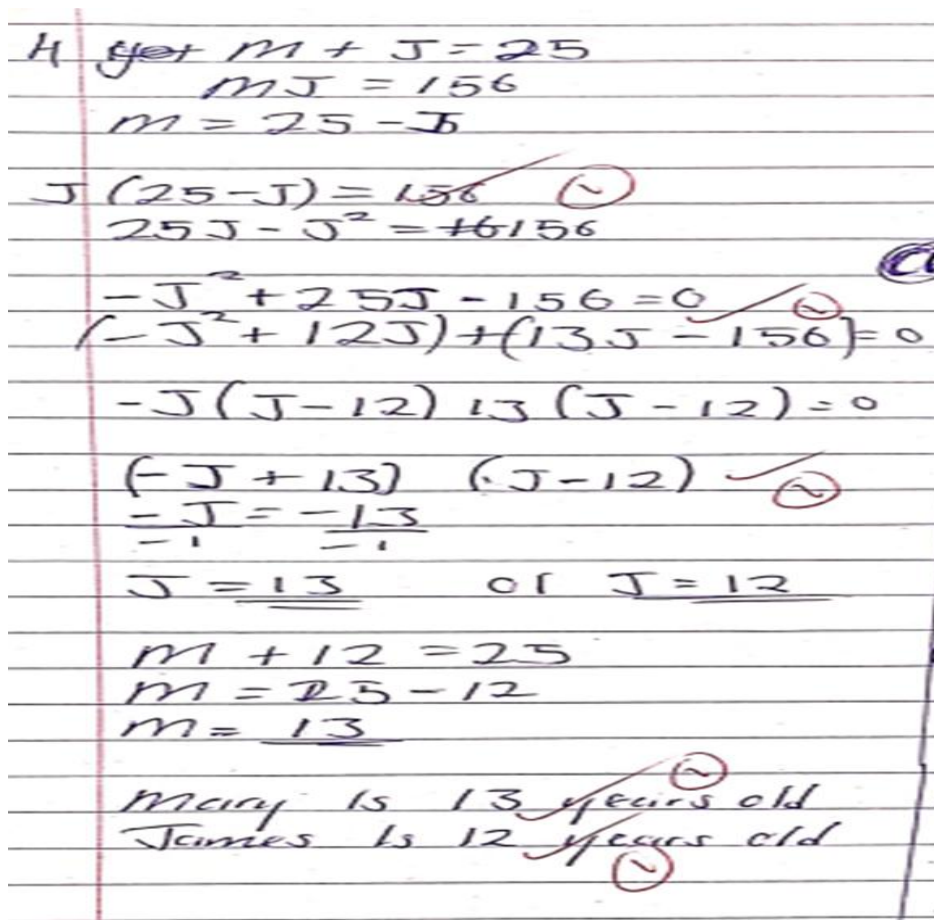 4 m + J = 25
mJ = 156
m = 25 - J
J (25 - J) = 156
25J - J² = 156
-J² + 25J - 156 = 0
(-J² + 12J) + (13J - 156) = 0
-J (J - 12) 13 (J - 12) = 0
(-J + 13) (J - 12)
-J = -13
-1 -1
J = 13 or J = 12
m + 12 = 25
m = 25 - 12
m = 13
Mary is 13 years old
James is 12 years old